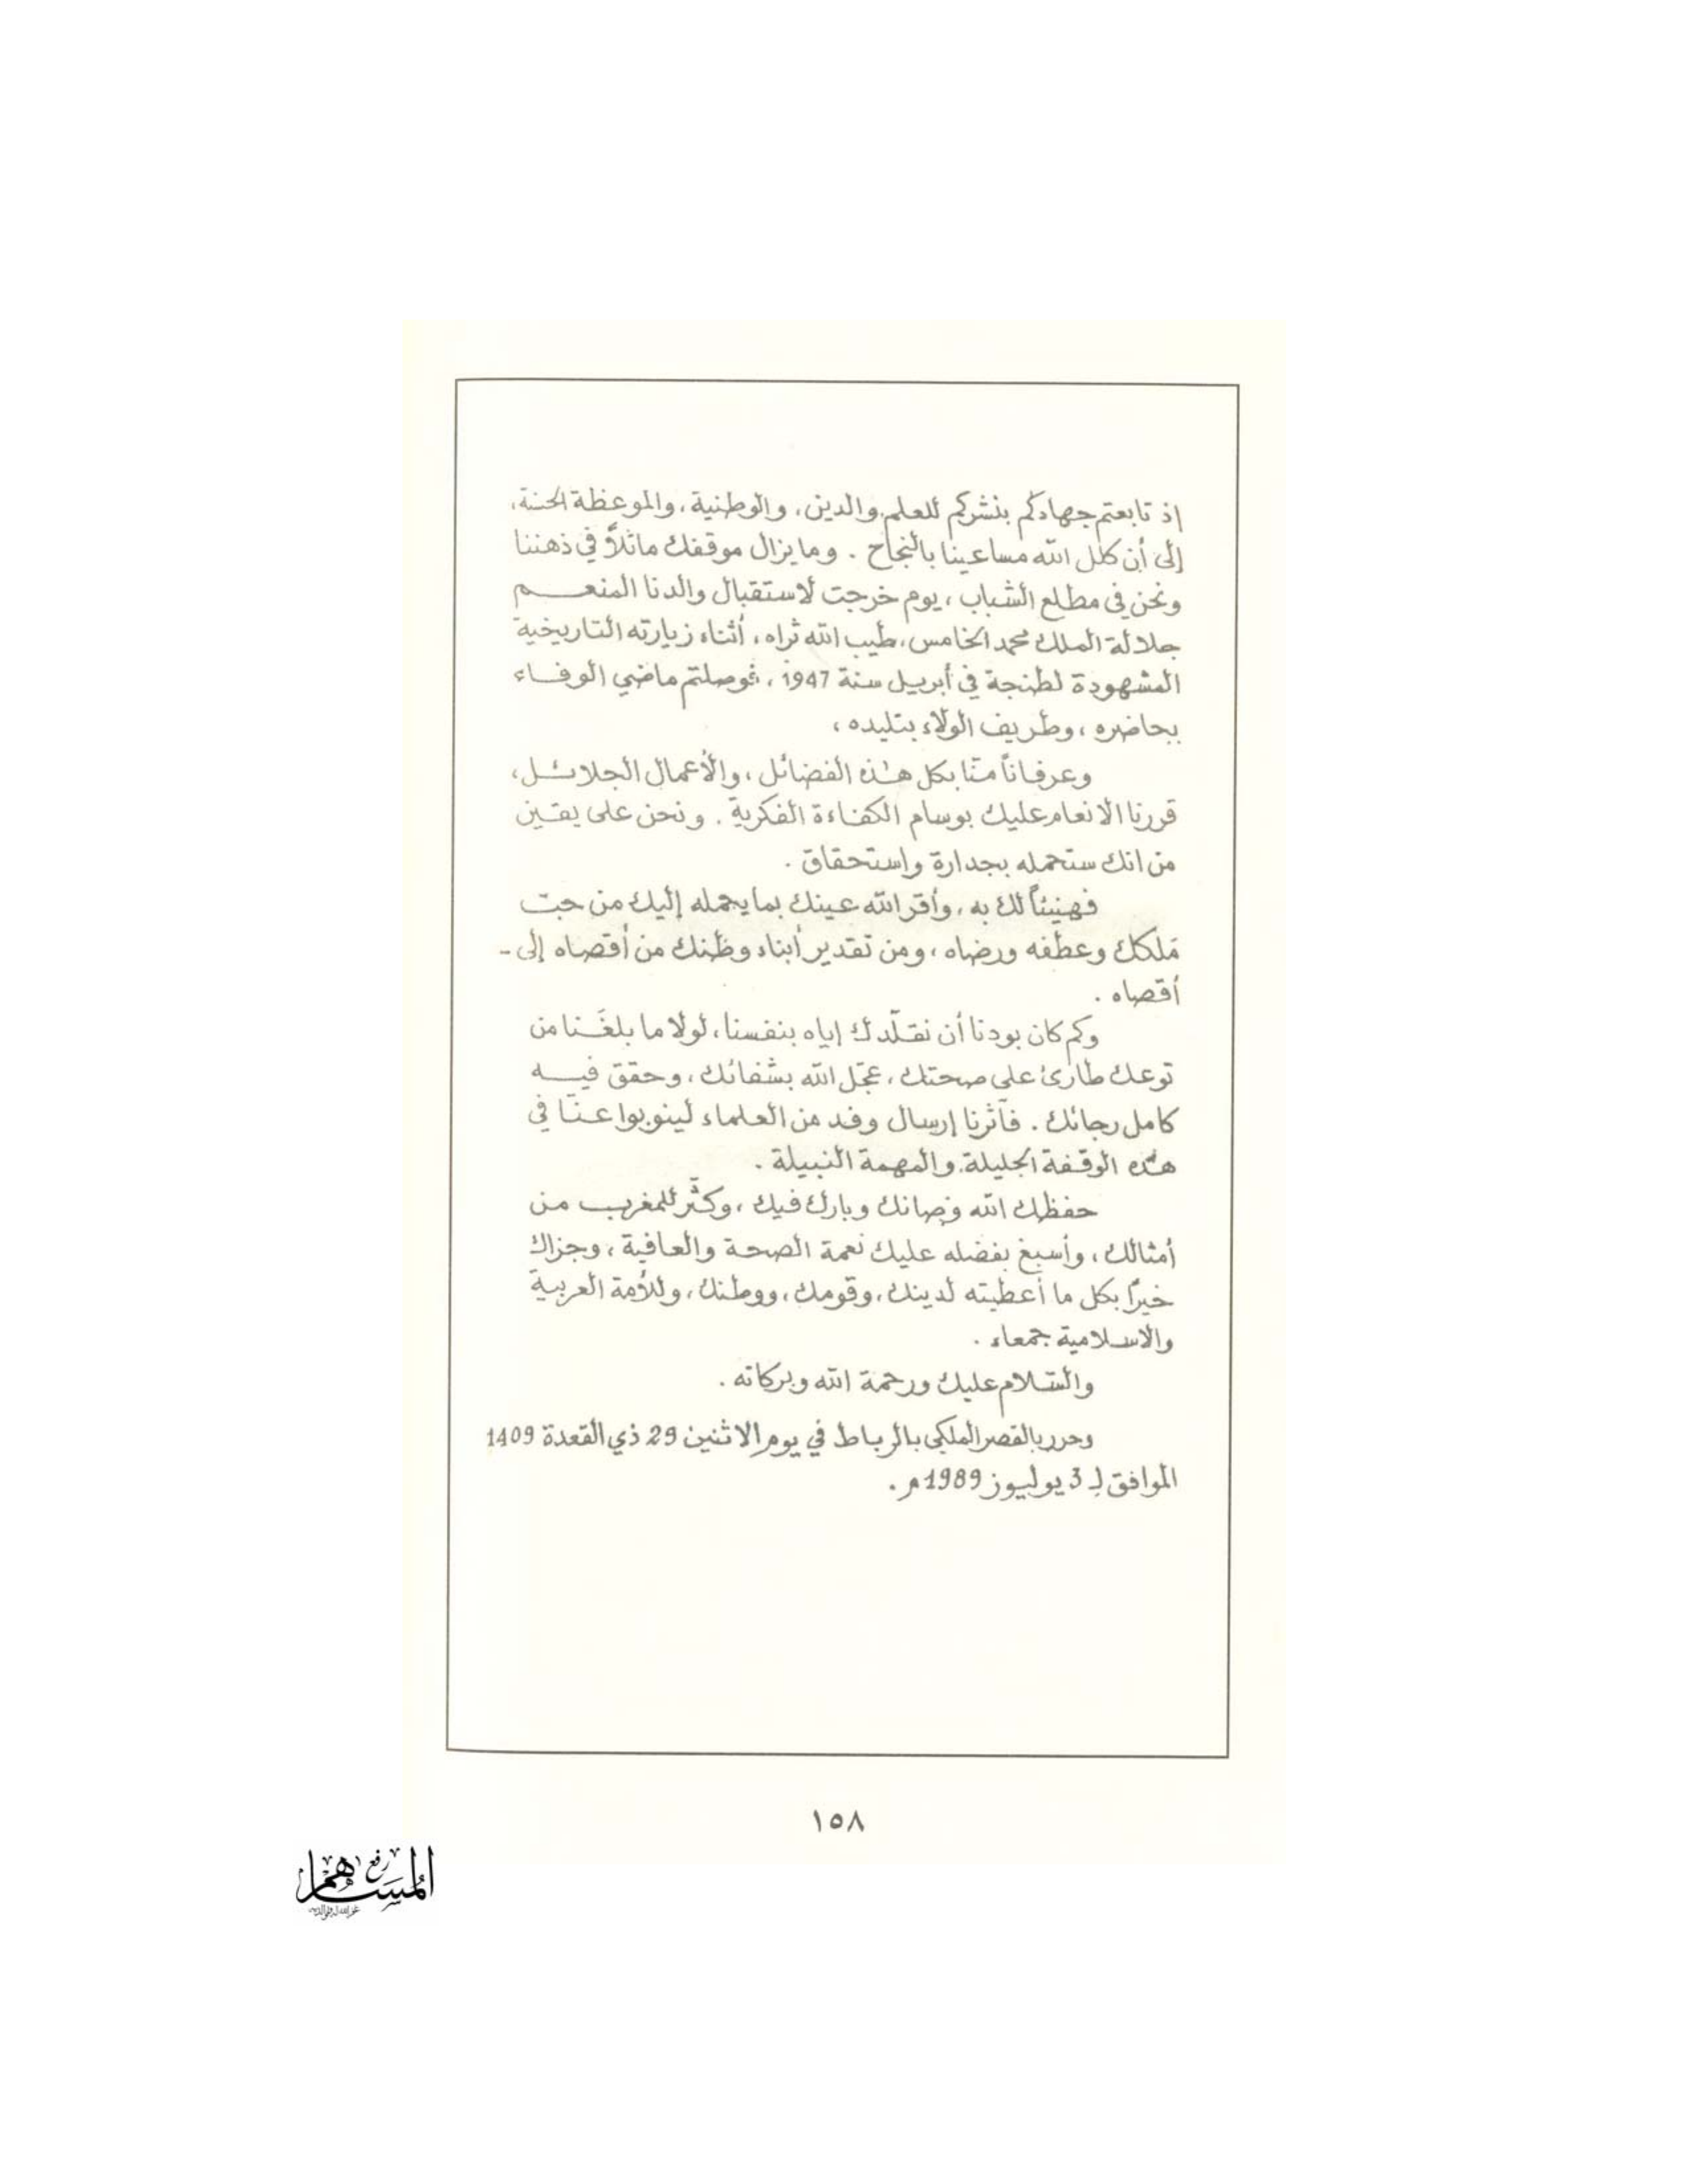 إذ تابعتم جهادكم بنشركم للعلم والدين، والوطنية، والموعظة الحسنة،
إلى أن كلل الله مساعينا بالنجاح . وما يزال موقفك ماثلاً في ذهننا
ونحن في مطلع الشباب، يوم خرجت لاستقبال والدنا المنعم
جلالة الملك محمد الخامس، طيب الله ثراه، أثناء زيارته التاريخية
المشهودة لطنجة في أبريل سنة 1947، فوصلتم ماضي الوفاء
بحاضره، وطريف الولاء بتليده،
وعرفاناً منّا بكل هذه الفضائل، والأعمال الجلائل،
قررنا الانعام عليك بوسام الكفاءة الفكرية . ونحن على يقين
من انك ستحمله بجدارة واستحقاق .
فهنيئاً لك به، وأقر الله عينك بما يحمله إليك من حب
مَلكك وعطفه ورضاه، ومن تقدير أبناء وطنك من أقصاه إلى -
أقصاه .
وكم كان بودنا أن نقلّدك إياه بنفسنا، لولا ما بلغَنا من
توعك طارئ على صحتك، عجّل الله بشفائك، وحقق فيه
كامل رجائك . فآثرنا إرسال وفد من العلماء لينوبوا عنّا في
هذه الوقفة الجليلة، والمهمة النبيلة .
حفظك الله وصانك وبارك فيك، وكثّر للمغرب من
أمثالك، وأسبغ بفضله عليك نعمة الصحة والعافية، وجزاك
خيراً بكل ما أعطيته لدينك، وقومك، ووطنك، وللأمة العربية
والاسلامية جمعاء .
والسّلام عليك ورحمة الله وبركاته .
وحرر بالقصر الملكي بالرباط في يوم الاثنين 29 ذي القعدة 1409
الموافق لـ 3 يوليوز 1989م .
١٥٨
رفع
المساهم